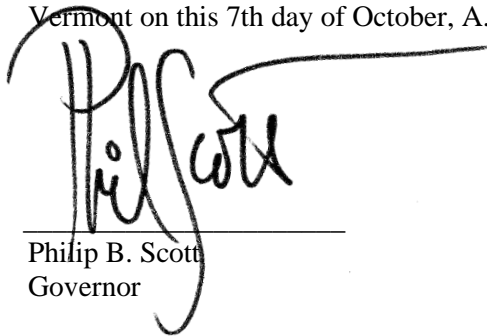 Vermont on this 7th day of October, A.
Phil Scott
Philip B. Scott
Governor